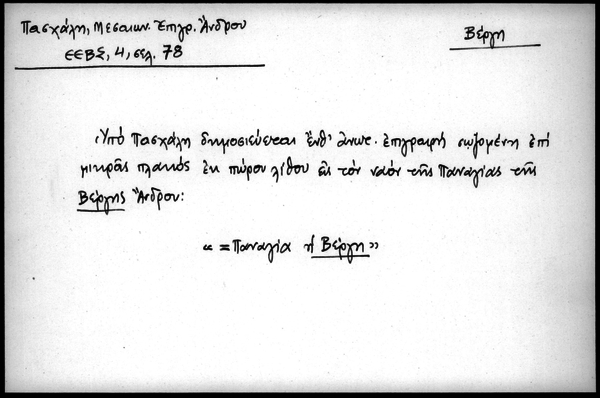 Πασχάλη, Μεσαιων. Ἐπιγρ. Ἄνδρου
ΕΕΒΣ, 4, σελ. 78
Βέργη
Ὑπό Πασχάλη δημοσιεύεται ἔνθ' ἀνωτ. ἐπιγραφή σῳζομένη ἐπί
μικρᾶς πλακός ἐκ πώρου λίθου εἰς τόν ναόν τῆς Παναγίας τῆς
Βέργης Ἄνδρου:
« = Παναγία ἡ Βέργη »